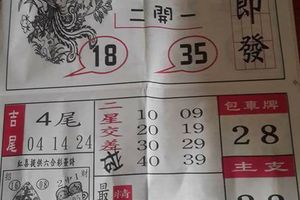 二開一
即發
18
35
吉尾
4尾
04 14 24
紅喜提供六合彩薈詩
二星交差
10 09
20 19
30 29
40 39
包車牌
28
主支
精
最
財